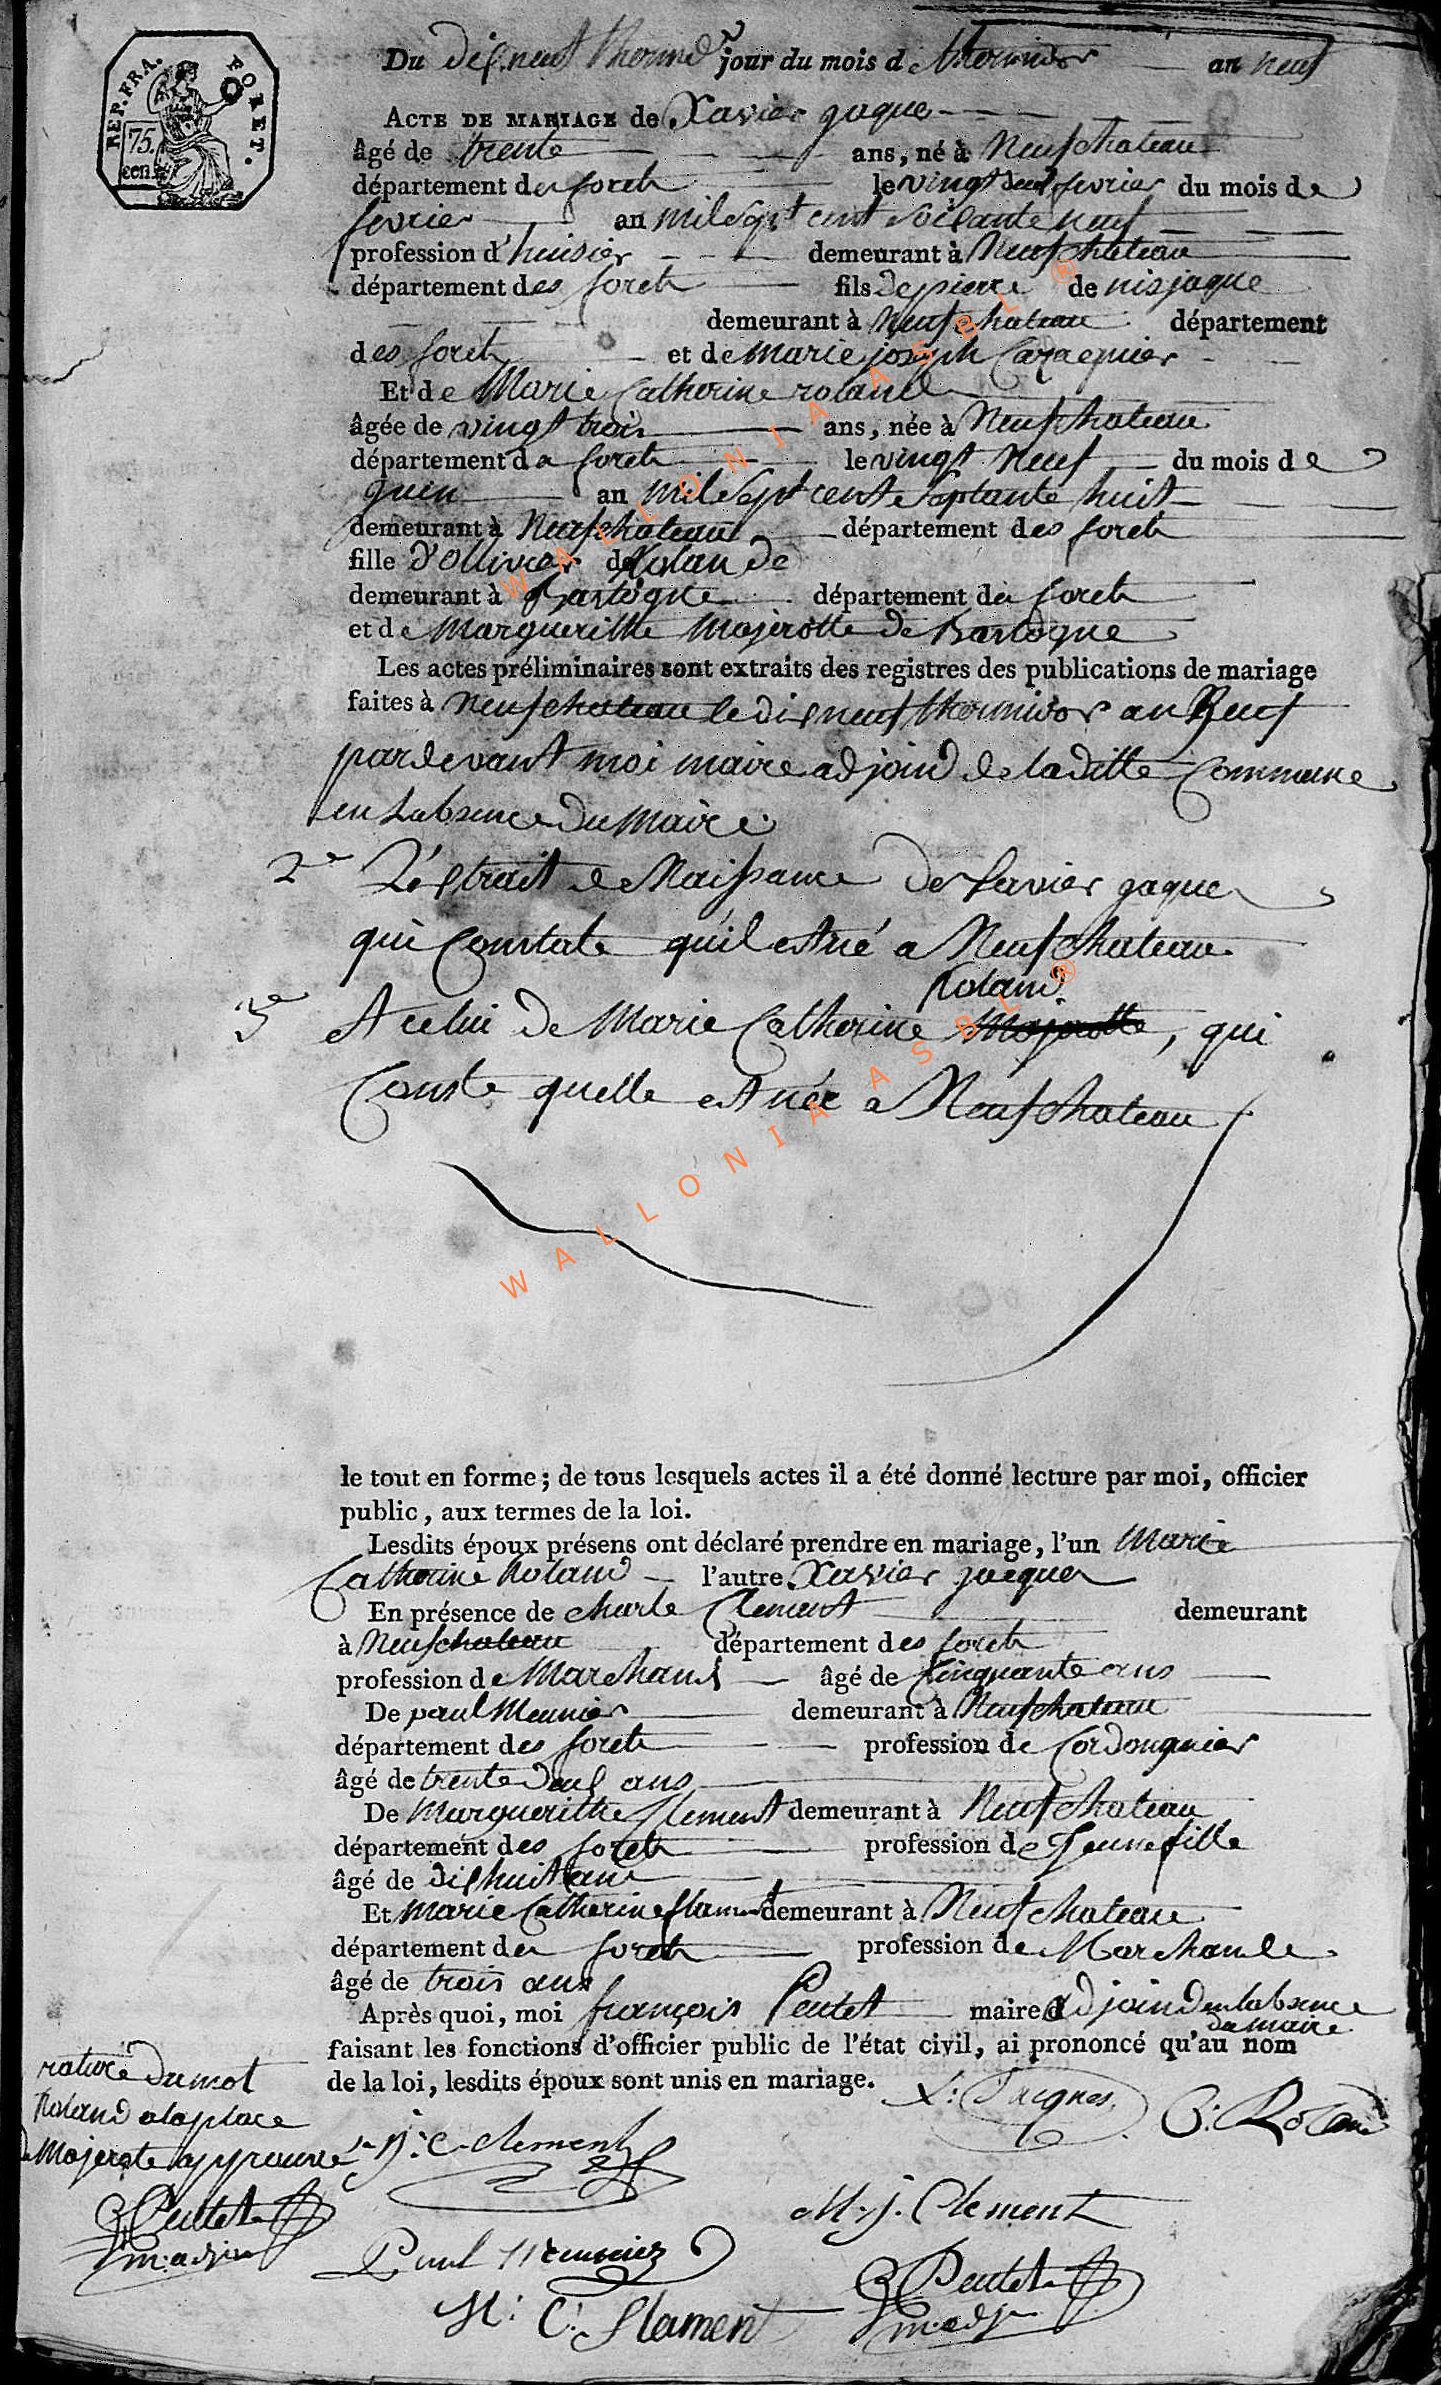 REP. FRA. FORET.
75. cen.
Du dixneuf thermd jour du mois de thermidor an neuf
ACTE DE MARIAGE de Xavier jaque
âgé de trente ans, né à Neufchateau
département des foret le vingt deux fevrier du mois de
fevrier an mil sept cent soixante neuf
profession d'huisier demeurant à Neufchateau
département des foret fils de pierre de nis jaque
demeurant à Neufchateau département
des foret et de marie joseph
Et de Marie Catherine roland
âgée de vingt trois ans, née à Neufchateau
département des foret le vingt neuf du mois de
juin an mil sept cent septante huit
demeurant à Neufchateau département des foret
fille d'Ollivier de Rolande
demeurant à Bastogne département des foret
et de Margueritte Majerotte de Bastogne
Les actes préliminaires sont extraits des registres des publications de mariage
faites à Neufchateau le dixneuf thermidor an Neuf
pardevant moi maire adjoind de laditte Commune
en Labsence du Maire
2e L'extrait de Naissance de Xavier jaque
qui Constate qu'il est né a Neufchateau
Roland
3e Et celui de Marie Catherine Majerotte, qui
Conste quelle est née a Neufchateau
le tout en forme; de tous lesquels actes il a été donné lecture par moi, officier
public, aux termes de la loi.
Lesdits époux présens ont déclaré prendre en mariage, l'un Marie
Catherine Roland l'autre Xavier jacque
En présence de charle Clement demeurant
à Neufchateau département des foret
profession de Marchand âgé de Cinquante ans
De paul Meunier demeurant à Neufchateau
département des foret profession de Cordonguier
âgé de trente deux ans
De Margueritte Clement demeurant à Neufchateau
département des foret profession de Jeune fille
âgé de dixhuit ans
Et Marie Catherine flament demeurant à Neufchateau
département des foret profession de Marchande
âgé de trois ans
Après quoi, moi françois Peutet maire adjoind en labsence
du maire
faisant les fonctions d'officier public de l'état civil, ai prononcé qu'au nom
de la loi, lesdits époux sont unis en mariage.
rature du mot
Roland a la place
de Majerote approuvé
Peutet
m: adjoin
X: Jacques
C: Roland
J: C- Clement
M. j. Clement
Paul Meunier
Peutet
m: adj
M: C: flament
WALLONIA ASBL ®
WALLONIA ASBL ®